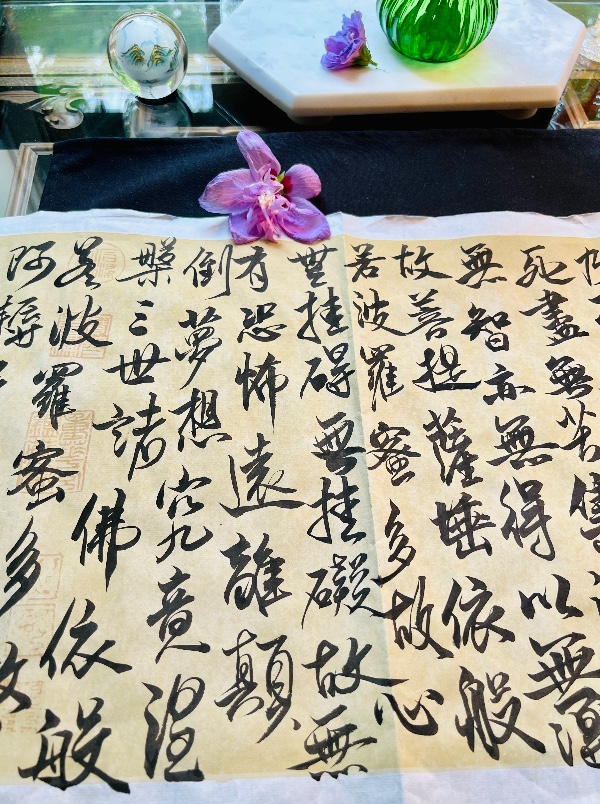 死盡無苦
無智亦無得以無
故菩提薩埵依般
若波羅蜜多故心
無挂碍無挂礙故無
有恐怖遠離顛
倒夢想究竟涅
槃三世諸佛依般
若波羅蜜多故
阿耨